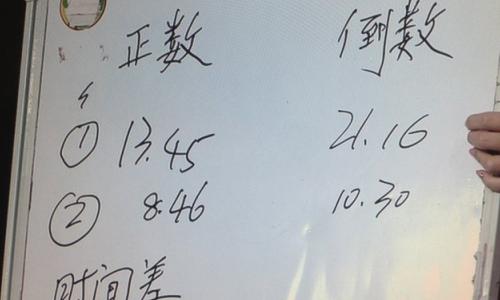 正数 倒数
① 13.45 21.16
② 8.46 10.30
时间差